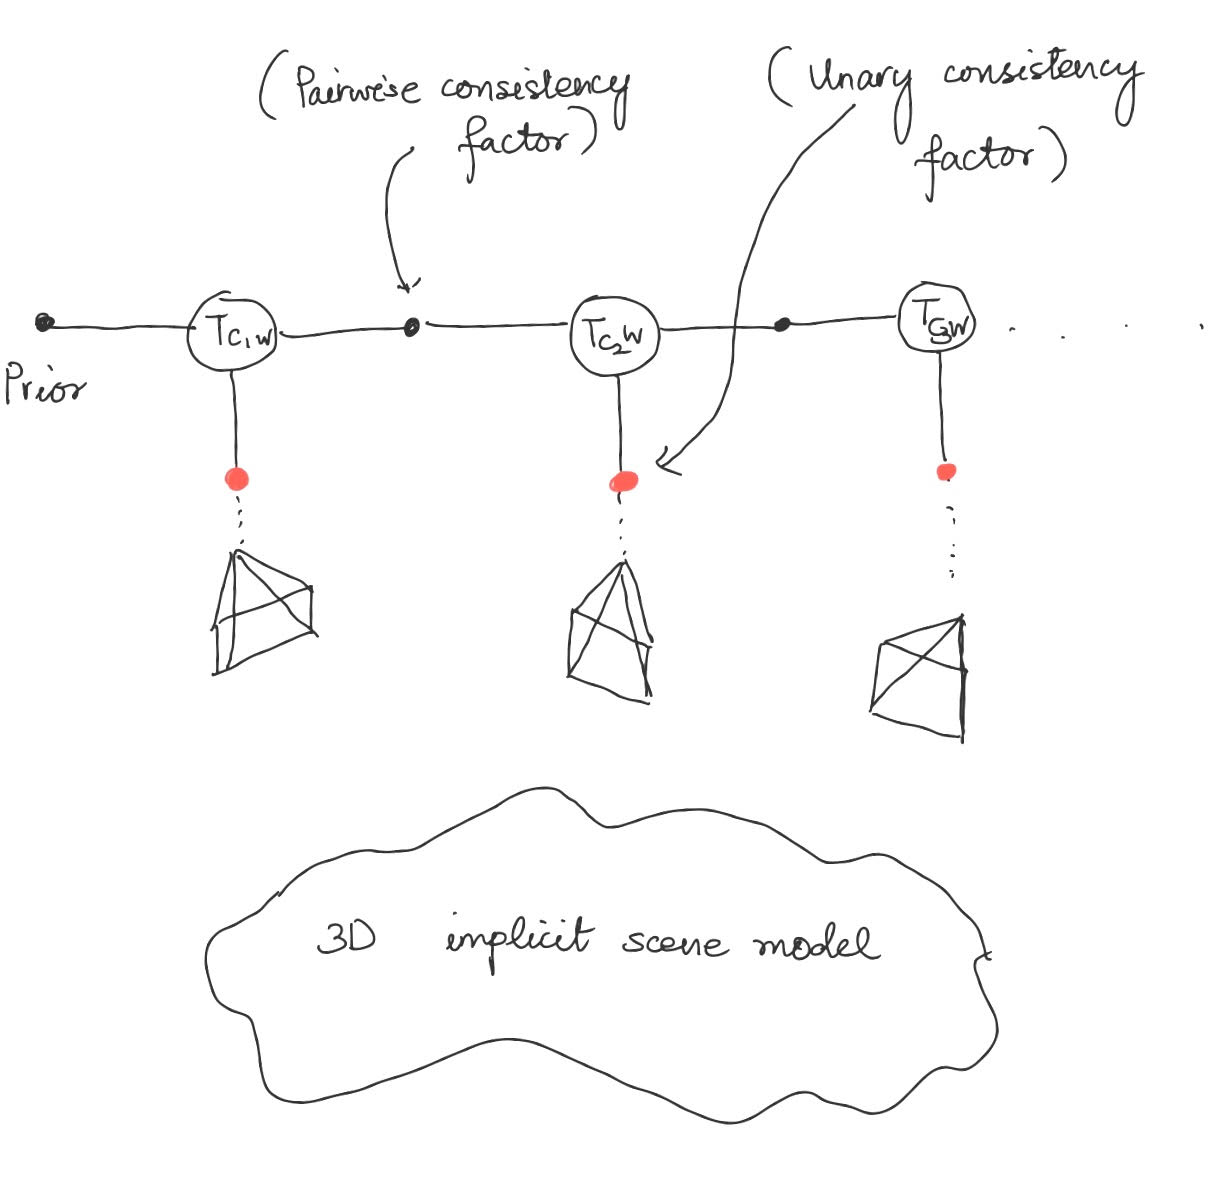 (Pairwise consistency
factor)
(Unary consistency
factor)
Prior
T_{C_1W}
T_{C_2W}
T_{C_3W}
3D implicit scene model